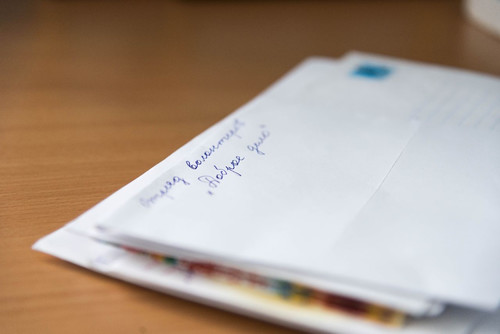 Отряд волонтеров
"Доброе дело"